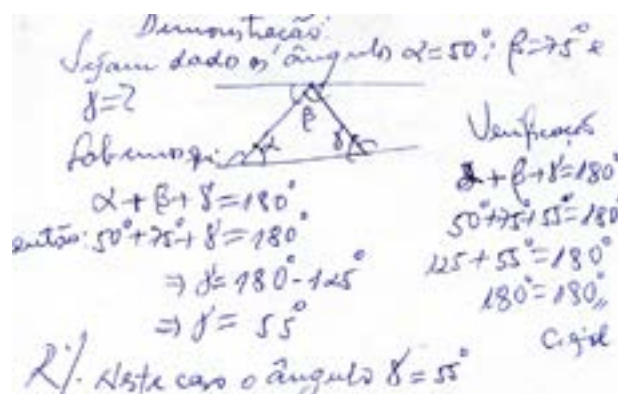 Demonstração:
Sejam dado os ângulos α=50°; β=75° e
γ=?
β
α
γ
Sabemos q:
α+β+γ=180°
então: 50°+75°+γ=180°
⇒ γ=180°-125°
⇒ γ= 55°
R/. Neste caso o ângulo γ=55°
Verificação
α+β+γ=180°
50°+75°+55°=180°
125+55°=180°
180°=180°,,
c.q.d